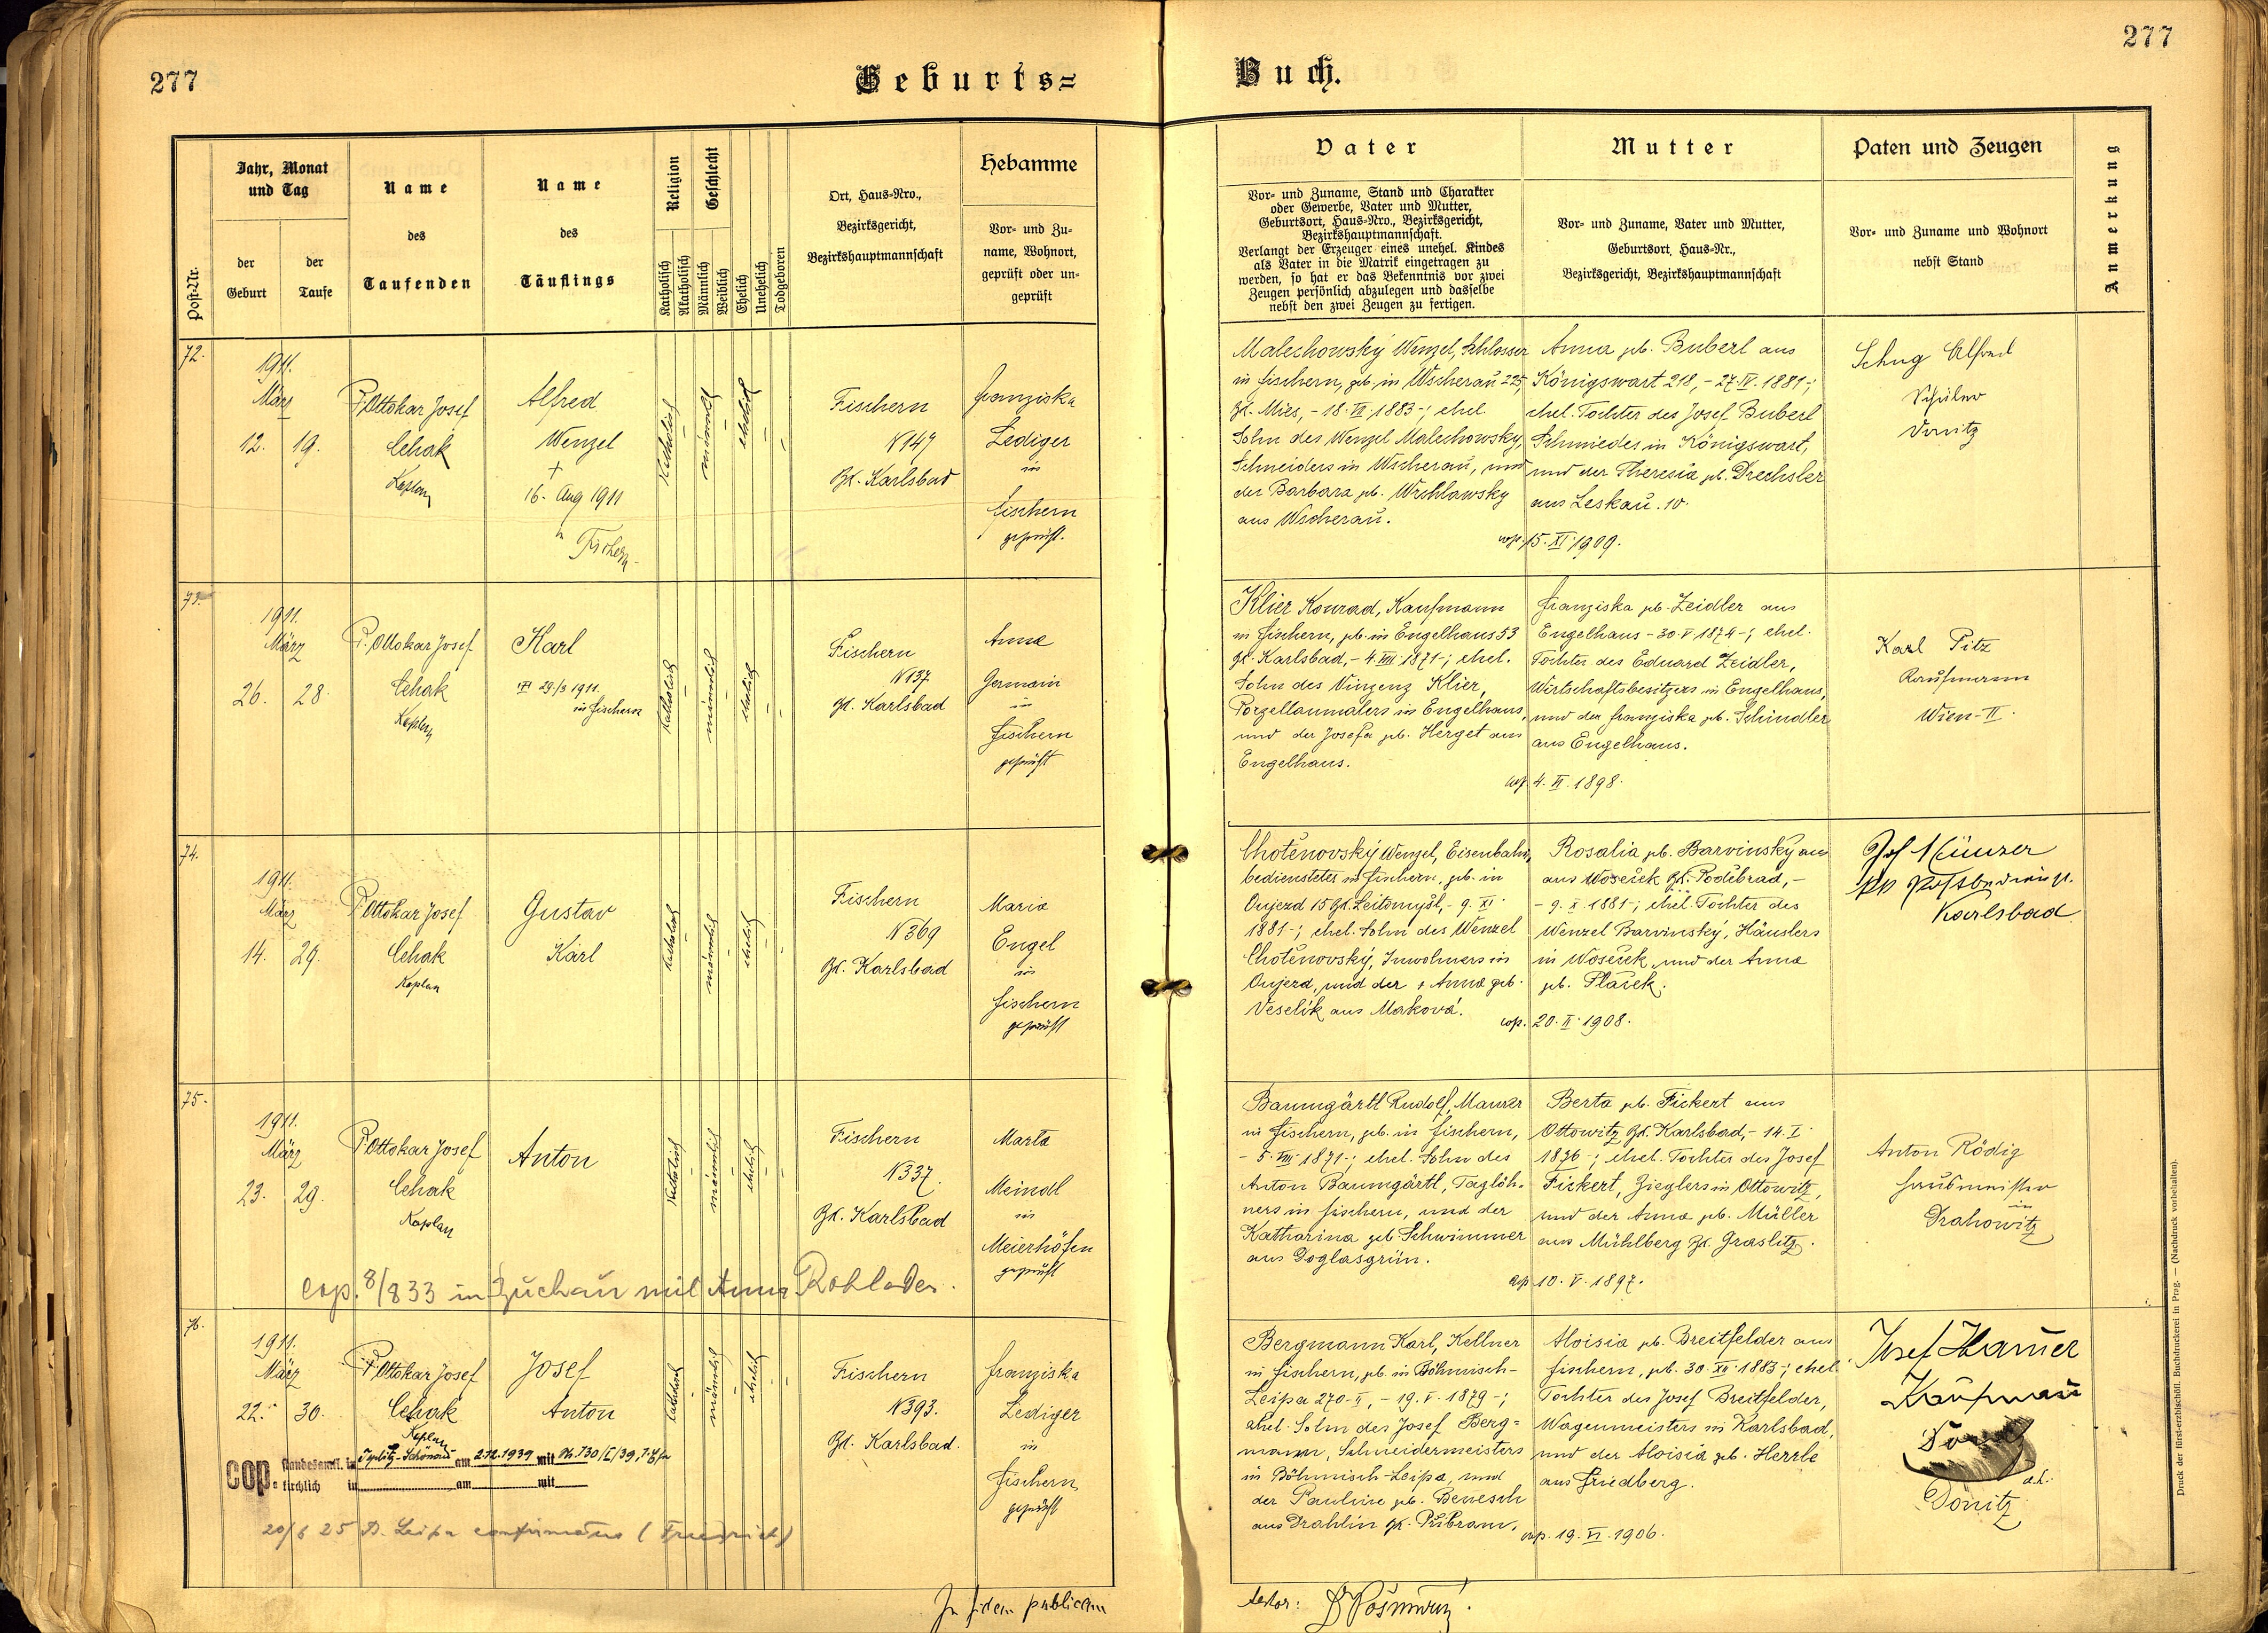 277
Geburts=
Buch.
277
Post-Nr.
Jahr, Monat
und Tag
der
Geburt
der
Taufe
Name
des
Taufenden
Name
des
Täuflings
Religion
Katholisch
Akatholisch
Geschlecht
Männlich
Weiblich
Ehelich
Unehelich
Todgeboren
Ort, Haus-Nro.,
Bezirksgericht,
Bezirkshauptmannschaft
Hebamme
Vor- und Zu-
name, Wohnort,
geprüft oder un-
geprüft
Vater
Vor- und Zuname, Stand und Charakter
oder Gewerbe, Vater und Mutter,
Geburtsort, Haus-Nro., Bezirksgericht,
Bezirkshauptmannschaft.
Verlangt der Erzeuger eines unehel. Kindes
als Vater in die Matrik eingetragen zu
werden, so hat er das Bekenntnis vor zwei
Zeugen persönlich abzulegen und dasselbe
nebst den zwei Zeugen zu fertigen.
Mutter
Vor- und Zuname, Vater und Mutter,
Geburtsort, Haus-Nr.,
Bezirksgericht, Bezirkshauptmannschaft
Paten und Zeugen
Vor- und Zuname und Wohnort
nebst Stand
Anmerkung
72.
1911.
März
12. 19.
P. Ottokar Josef
Cehak
Kaplan
Alfred
Wenzel
+
16. Aug 1911
in Fischern
katholisch
männlich
ehelich
Fischern
N 147
Bz. Karlsbad
Franziska
Lediger
in
Fischern
geprüft.
Malechowský Wenzel, Schlosser
in Fischern, geb. in Wscherau 225,
Bz. Mies, - 18. VII. 1883 -; ehel.
Sohn des Wenzel Malechowsky,
Schneiders in Wscherau, und
der Barbara geb. Wrchlawsky
aus Wscherau.
Anna geb. Buberl aus
Königswart 218, - 27. IV. 1881 -;
ehel. Tochter des Josef Buberl
Schmiedes in Königswart,
und der Theresia geb. Drechsler
aus Leskau. 10.
cop. 15. XI. 1909.
Schug Alfred
Schüler
Donitz
73.
1911.
März
26. 28.
P. Ottokar Josef
Cehak
Kaplan
Karl
29./3 1911.
in Fischern
katholisch
männlich
ehelich
Fischern
N 137
Bz. Karlsbad
Anna
Germain
in
Fischern
geprüft
Klier Konrad, Kaufmann
in Fischern, geb. in Engelhaus 53
Bz. Karlsbad, - 4. VIII. 1871 -; ehel.
Sohn des Vinzenz Klier,
Porzellanmalers in Engelhaus,
und der Josefa geb. Herget aus
Engelhaus.
Franziska geb. Zeidler aus
Engelhaus - 30. V. 1874 -; ehel.
Tochter des Eduard Zeidler,
Wirtschaftsbesitzers in Engelhaus,
und der Franziska geb. Schindler
aus Engelhaus.
cop. 4. VI. 1898.
Karl Pitz
Kaufmann
Wien - II.
74.
1911.
März
14. 29.
P. Ottokar Josef
Cehak
Kaplan
Gustav
Karl
katholisch
männlich
ehelich
Fischern
N 369
Bz. Karlsbad
Maria
Engel
in
Fischern
geprüft
Chotěnovský Wenzel, Eisenbahn-
bediensteter in Fischern, geb. in
Oujezd 15 Bz. Leitomyšl, - 9. XI.
1881 -; ehel. Sohn des Wenzel
Chotěnovský, Inwohners in
Oujezd, und der + Anna geb.
Veselík aus Maková.
Rosalia geb. Barvinský aus
aus Woseček Bz. Poděbrad, -
- 9. X. 1881 -; ehel. Tochter des
Wenzel Barvinský, Häuslers
in Woseček, und der Anna
geb. Plaček.
cop. 20. II. 1908.
Karlsbad
75.
1911.
März
23. 29.
P. Ottokar Josef
Cehak
Kaplan
Anton
katholisch
männlich
ehelich
Fischern
N 337.
Bz. Karlsbad
Marta
Meindl
in
Meierhöfen
geprüft
Baumgärtl Rudolf, Maurer
in Fischern, geb. in Fischern,
- 5. VIII. 1871 -; ehel. Sohn des
Anton Baumgärtl, Taglöh-
ners in Fischern, und der
Katharina geb. Schwimmer
aus Doglasgrün.
Berta geb. Fickert aus
Ottowitz Bz. Karlsbad, - 14. I.
1876 -; ehel. Tochter des Josef
Fickert, Zieglers in Ottowitz,
und der Anna geb. Müller
aus Mühlberg Bz. Graslitz.
cop. 10. V. 1897.
Anton Rödig
Hausmeister
in
Drahowitz
cop. 8/833 in Zuchau mit Anna Rohlader.
76.
1911.
März
22. 30.
P. Ottokar Josef
Cehak
Kaplan
Josef
Anton
katholisch
männlich
ehelich
Fischern
N 393.
Bz. Karlsbad.
Franziska
Lediger
in
Fischern,
geprüft
Bergmann Karl, Kellner
in Fischern, geb. in Böhmisch-
Leipa 270-II, - 19. V. 1879 -;
ehel. Sohn des Josef Berg-
mann, Schneidermeisters
in Böhmisch-Leipa, und
der Pauline geb. Benesch
aus Drahlin Bz. Přibram.
Aloisia geb. Breitfelder aus
Fischern, geb. 30. XII. 1883 -; ehel.
Tochter des Josef Breitfelder,
Wagenmeisters in Karlsbad,
und der Aloisia geb. Herrle
aus Friedberg.
cop. 19. VI. 1906.
Josef Hamer
Kaufmann
Donitz
cop. standesamtl. in Teplitz-Schönau am 2.12.1939 mit
kirchlich in am mit
20/6 25 B. Leipa confirmatus (Friedrich)
In fidem publicam
Druck der fürst-erzbischöfl. Buchdruckerei in Prag. — (Nachdruck vorbehalten).